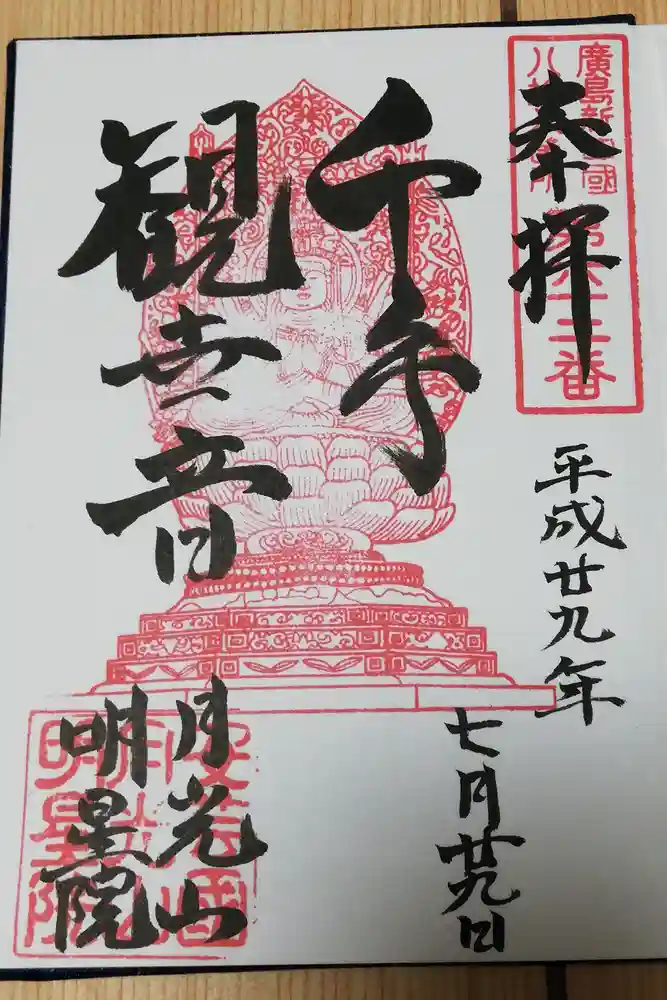 奉拝
廣島新四國
八十八ヶ所
第六十三番
平成廿九年
七月廿九日
千手
観世音
月光山
明星院